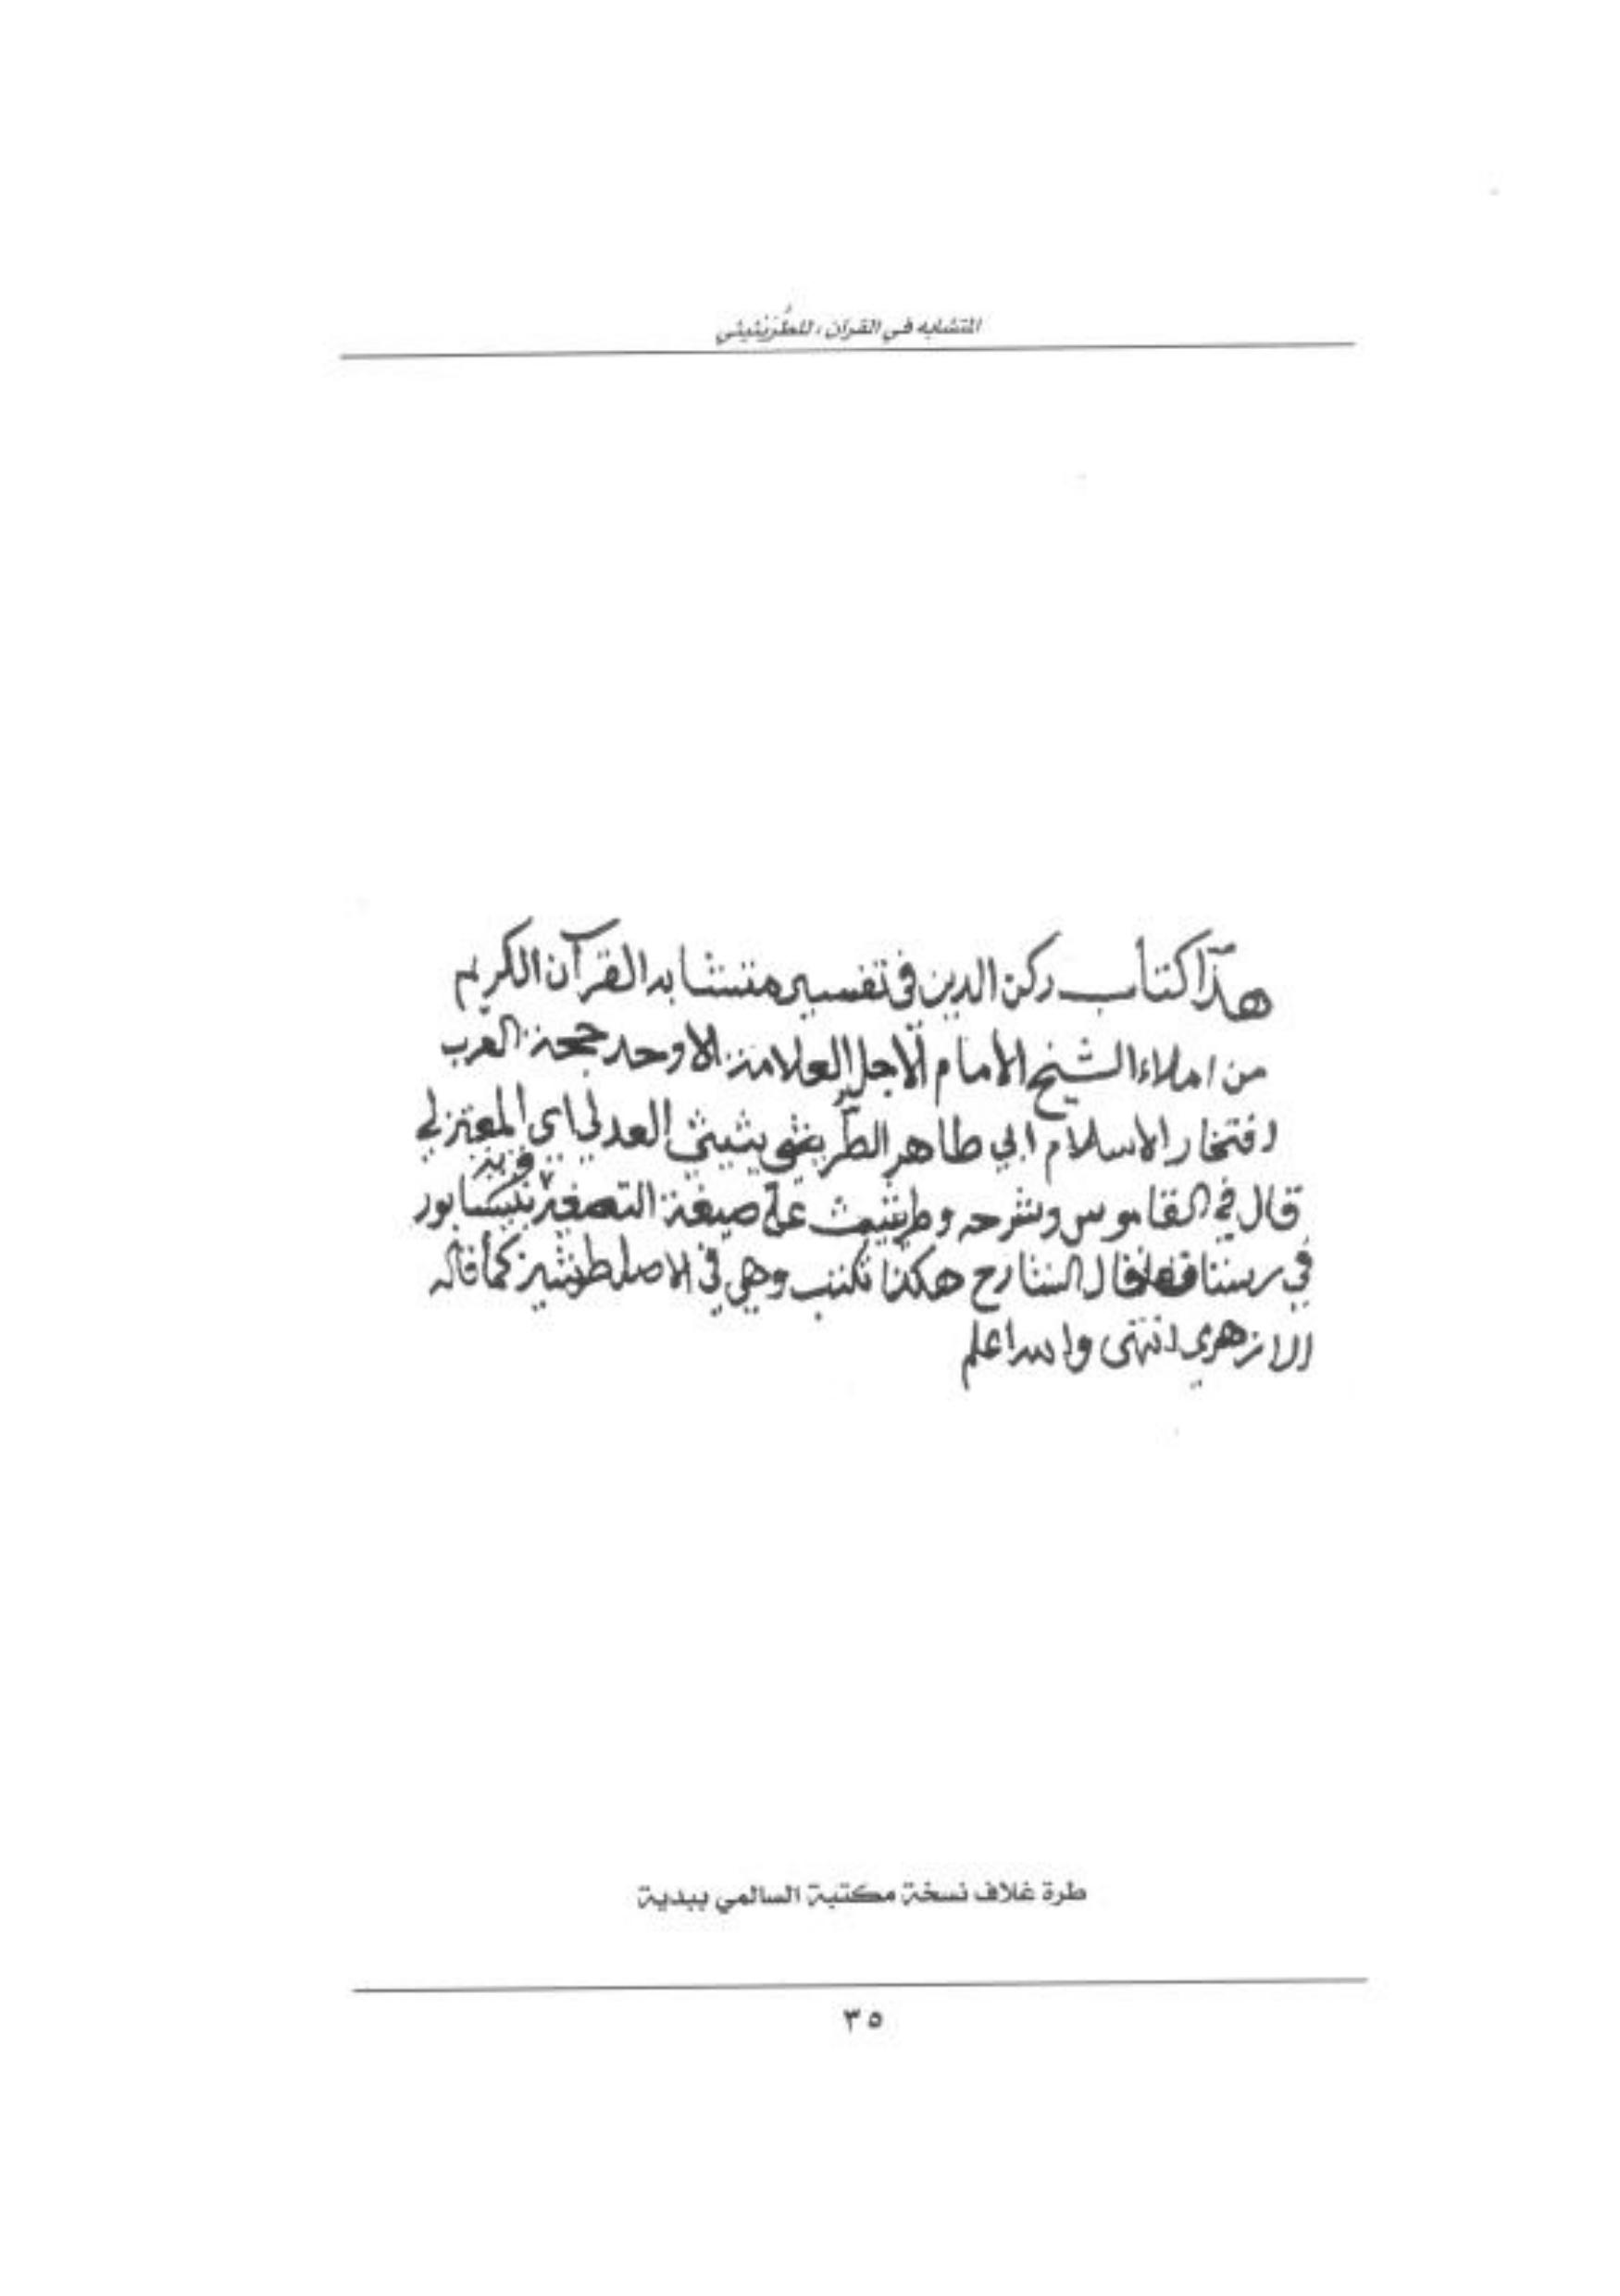 المتشابه في القرآن، للطُّرَيْثيثي
هذا كتاب ركن الدين في تفسير متشابه القرآن الكريم
من املاء الشيخ الامام الأجل العلامة الاوحد حجة العرب
افتخار الاسلام ابي طاهر الطريثيثي العدلي اي المعتزلي
قال في القاموس وشرحه وطريثيث على صيغة التصغير قرية بنيسابور
في رستاق قال الشارح هكذا تكتب وهي في الاصل طرثيث كما قاله
الازهري انتهى والله اعلم
طرة غلاف نسخة مكتبة السالمي ببدية
٣٥